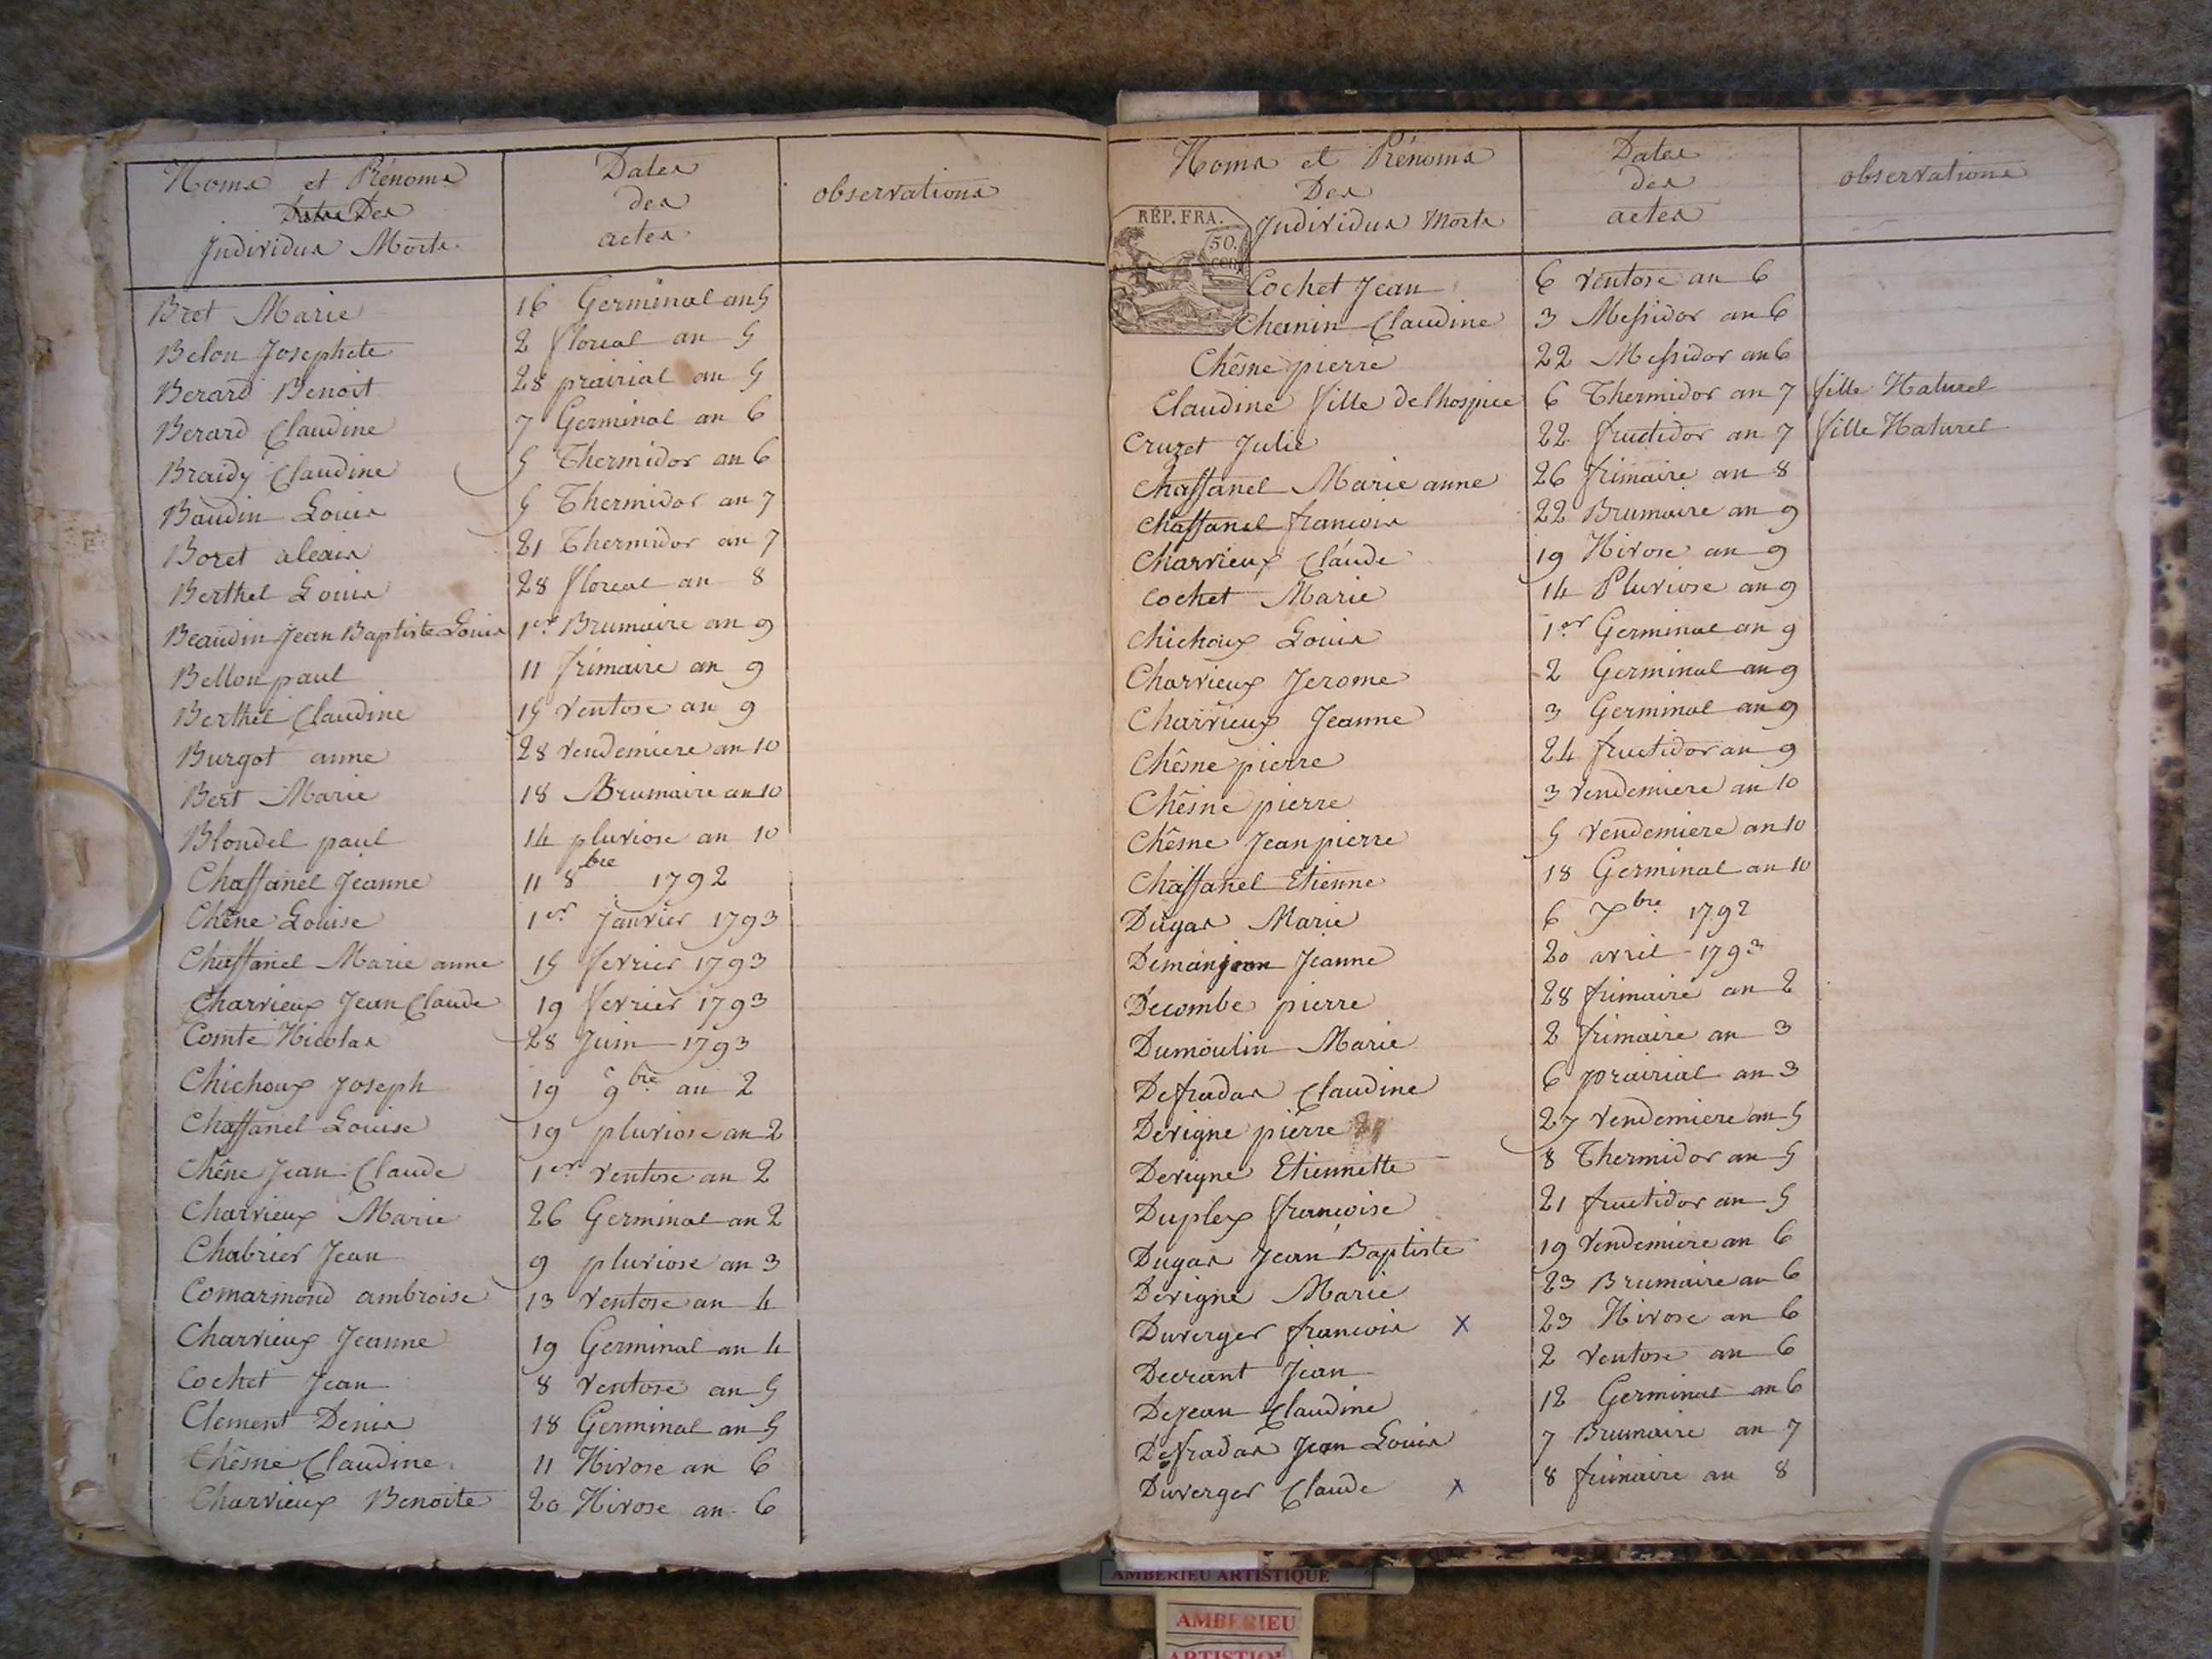 Noms et Prénoms
Des
Individus Morts
Dates
des
actes
observations
Bret Marie 16 Germinal an 5
Belon Josephete 2 floreal an 5
Berard Benoit 28 prairial an 5
Berard Claudine 7 Germinal an 6
Braidy Claudine 5 Thermidor an 6
Baudin Louis 5 Thermidor an 7
Boret alexis 21 Thermidor an 7
Berthet Louis 28 floreal an 8
Beaudin Jean Baptiste Louis 1er Brumaire an 9
Bellon paul 11 frimaire an 9
Berthet Claudine 15 ventose an 9
Burgot anne 28 vendemiere an 10
Bert Marie 18 Brumaire an 10
Blondel paul 14 pluviose an 10
Chaffanel Jeanne 11 8bre 1792
Chêne Louise 1er Janvier 1793
Chaffanel Marie anne 15 fevrier 1793
Charvieux Jean Claude 19 fevrier 1793
Comte Nicolas 28 Juin 1793
Chichoux Joseph 19 9bre an 2
Chaffanel Louise 19 pluviose an 2
Chêne Jean Claude 1er ventose an 2
Charvieux Marie 26 Germinal an 2
Chabrier Jean 9 pluviose an 3
Comarmond ambroise 13 ventose an 4
Charvieux Jeanne 19 Germinal an 4
Cochet Jean 8 ventose an 5
Clement Denis 18 Germinal an 5
Chêsne Claudine 11 Nivose an 6
Charvieux Benoite 20 Nivose an 6
Noms et Prénoms
Des
Individus Morts
Dates
des
actes
observations
RÉP. FRA.
50.
cen
Cochet Jean 6 ventose an 6
Chanin Claudine 3 Messidor an 6
Chêsne pierre 22 Messidor an 6
Claudine fille de lhospice 6 Thermidor an 7 fille Naturel
Cruzet Julie 22 fructidor an 7 fille Naturel
Chaffanel Marie anne 26 frimaire an 8
Chaffanel francois 22 Brumaire an 9
Charvieux Claude 19 Nivose an 9
Cochet Marie 14 Pluviose an 9
Chichoux Louis 1er Germinal an 9
Charvieux Jerome 2 Germinal an 9
Charvieux Jeanne 3 Germinal an 9
Chêsne pierre 24 fructidor an 9
Chêsne pierre 3 vendemiere an 10
Chêsne Jean pierre 5 vendemiere an 10
Chaffanel Etienne 18 Germinal an 10
Dugas Marie 6 7bre 1792
Demanjeon Jeanne 20 avril 1793
Decombe pierre 28 frimaire an 2
Dumoulin Marie 2 frimaire an 3
Defradas Claudine 6 prairial an 3
Devigne pierre 27 vendemiere an 5
Devigne Etiennette 8 Thermidor an 5
Duplex francoise 21 fructidor an 5
Dugas Jean Baptiste 19 vendemiere an 6
Devigne Marie 23 Brumaire an 6
Duverger francois x 23 Nivose an 6
Decrant Jean 2 ventose an 6
Dejean Claudine 12 Germinal an 6
Defradas Jean Louis 7 Brumaire an 7
Duverger Claude x 8 frimaire an 8
AMBERIEU ARTISTIQUE
AMBERIEU
ARTISTIQUE